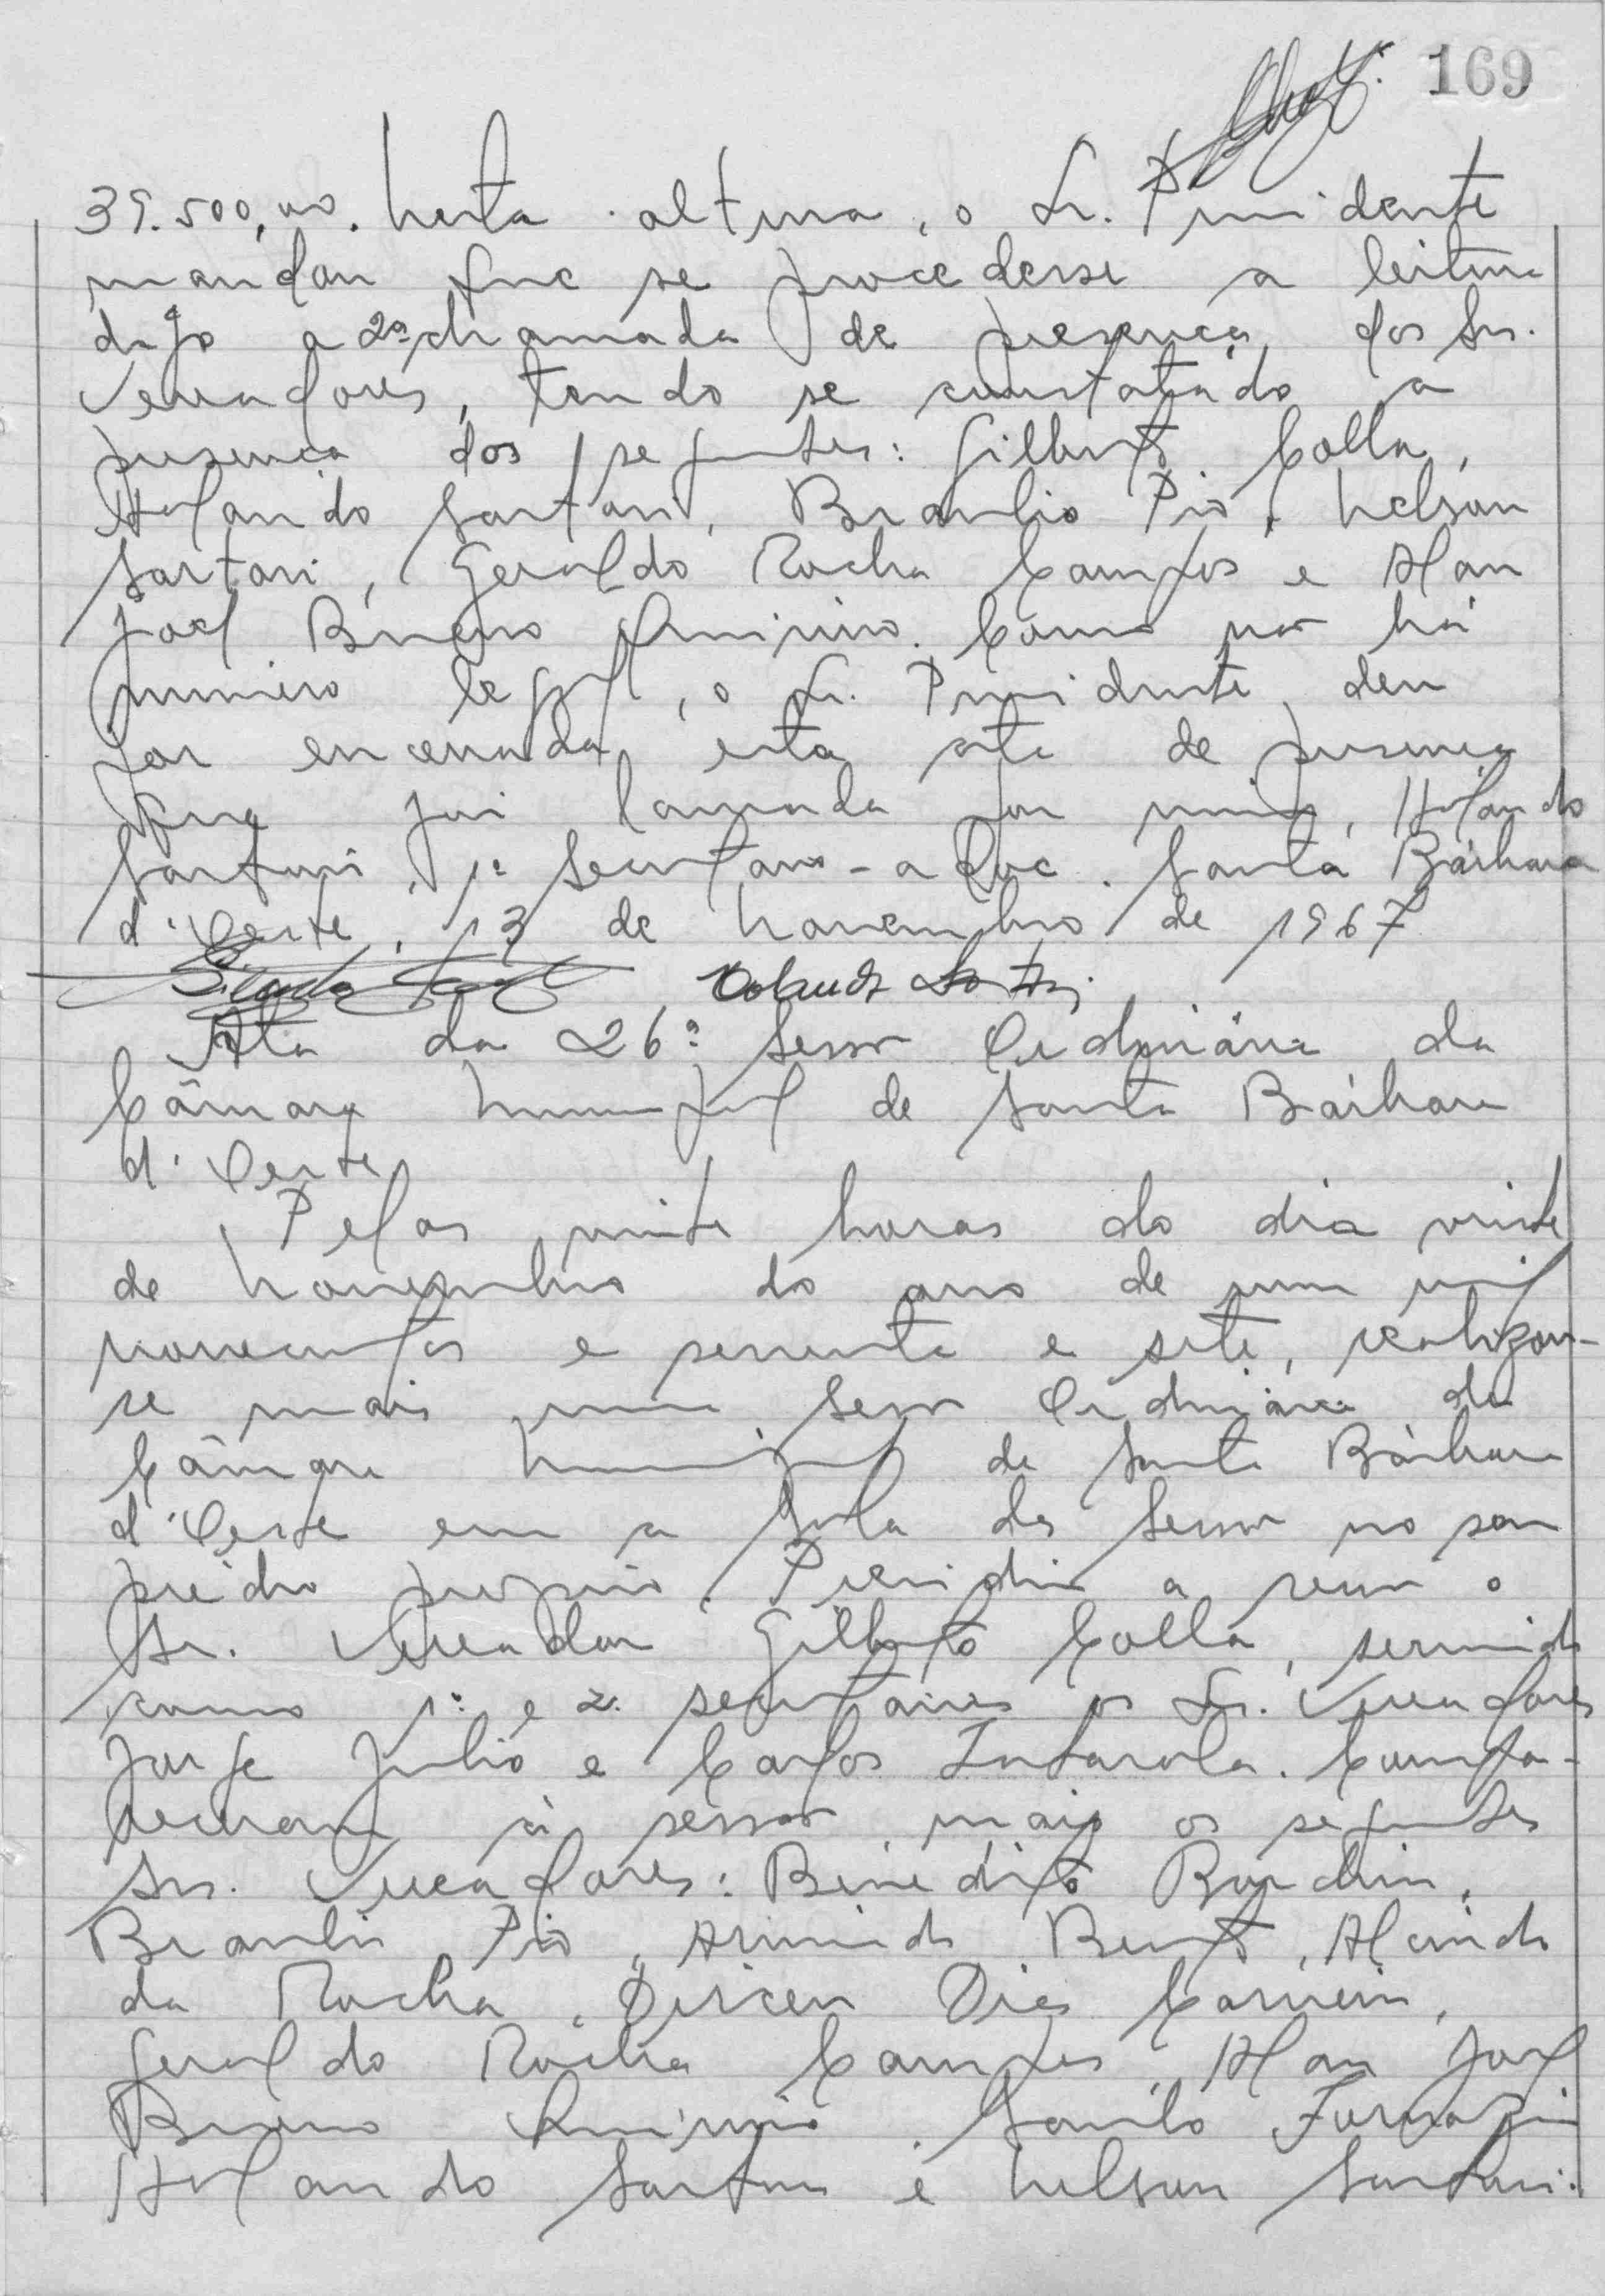 169
39.500,00. Nesta altura, o Sr. Presidente
mandou que se procedesse a leitura
digo a 2ª chamada de presença dos Srs.
Vereadores, tendo se constatado a
presença dos seguintes: Gilberto Colla,
Holando Sartori, Braulio Pio, Nelson
Sartori, Geraldo Rocha Campos e Alan
Joel Bueno Quirino. Como não há
número legal, o Sr. Presidente deu
por encerrada esta ata de presença
que foi lavrada por mim, Holando
Sartori, 1º Secretario-adoc. Santa Bárbara
d'Oeste, 13 de Novembro de 1967
Ata da 26ª Sessão Ordinária da
Câmara Municipal de Santa Bárbara
d'Oeste
Pelas vinte horas do dia vinte
de Novembro do ano de um mil
novecentos e sessenta e sete, realizou-
se mais uma Sessão Ordinária da
Câmara Municipal de Santa Bárbara
d'Oeste em a Sala das Sessão no seu
prédio proprio. Presidiu a sessão o
Sr. Vereador Gilberto Colla, servindo
como 1º e 2º secretários os Srs. Vereadores
Jorge Julio e Carlos Intarola. Compa-
receram à sessão mais os seguintes
Srs. Vereadores: Benedito Bordim,
Braulio Pio, Armindo Bento, Alcindo
da Rocha, Dirceu Dias Carneiro,
Geraldo Rocha Campos, Alan Joel
Bueno Quirino, Santo Fornazin
Holando Sartori e Nelson Sartori.